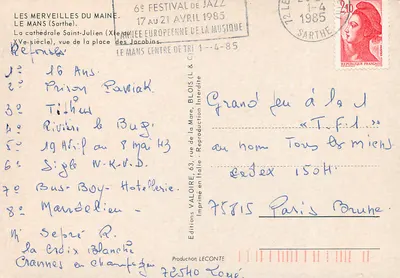 LES MERVEILLES DU MAINE.
LE MANS (Sarthe).
La cathédrale Saint-Julien (XIe-
XVe siècle), vue de la place des Jacobins.
6e FESTIVAL de JAZZ
17 AU 21 AVRIL 1985
ANNÉE EUROPÉENNE DE LA MUSIQUE
LE MANS CENTRE DE TRI 1-4-85
72 LE
1-4
1985
SARTHE
2,10
Réponses
1° 16 Ans.
2° Prison Pawiak
3°
4° Rivière le Bug.
5° 19 Avril au 8 Mai 43
6° Sigle N.K.V.D.
7° Bus-Boy-Hotellerie.
8° Mandelieu
La Croix Blanche
Crannes en Champagne
72540 Loué
Editions VALOIRE, 63, rue de la Mare, BLOIS
Imprimé en Italie - Reproduction interdite
Production LECONTE
Grand jeu de la 1
"T.F.1."
au nom Tous les miens
cedex 1504
75815 Paris Brune